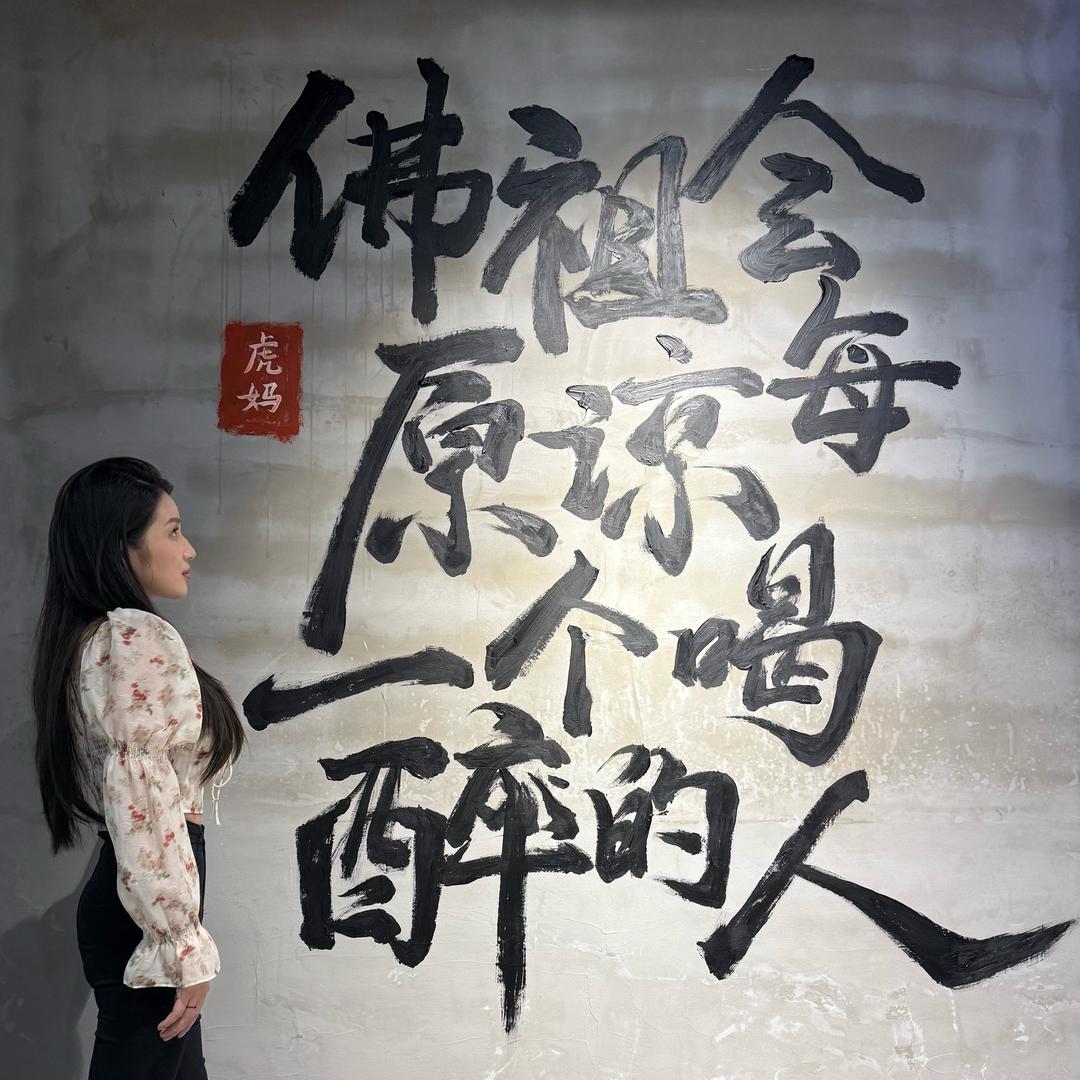 佛祖会
原谅每
一个喝
醉的人
虎
妈